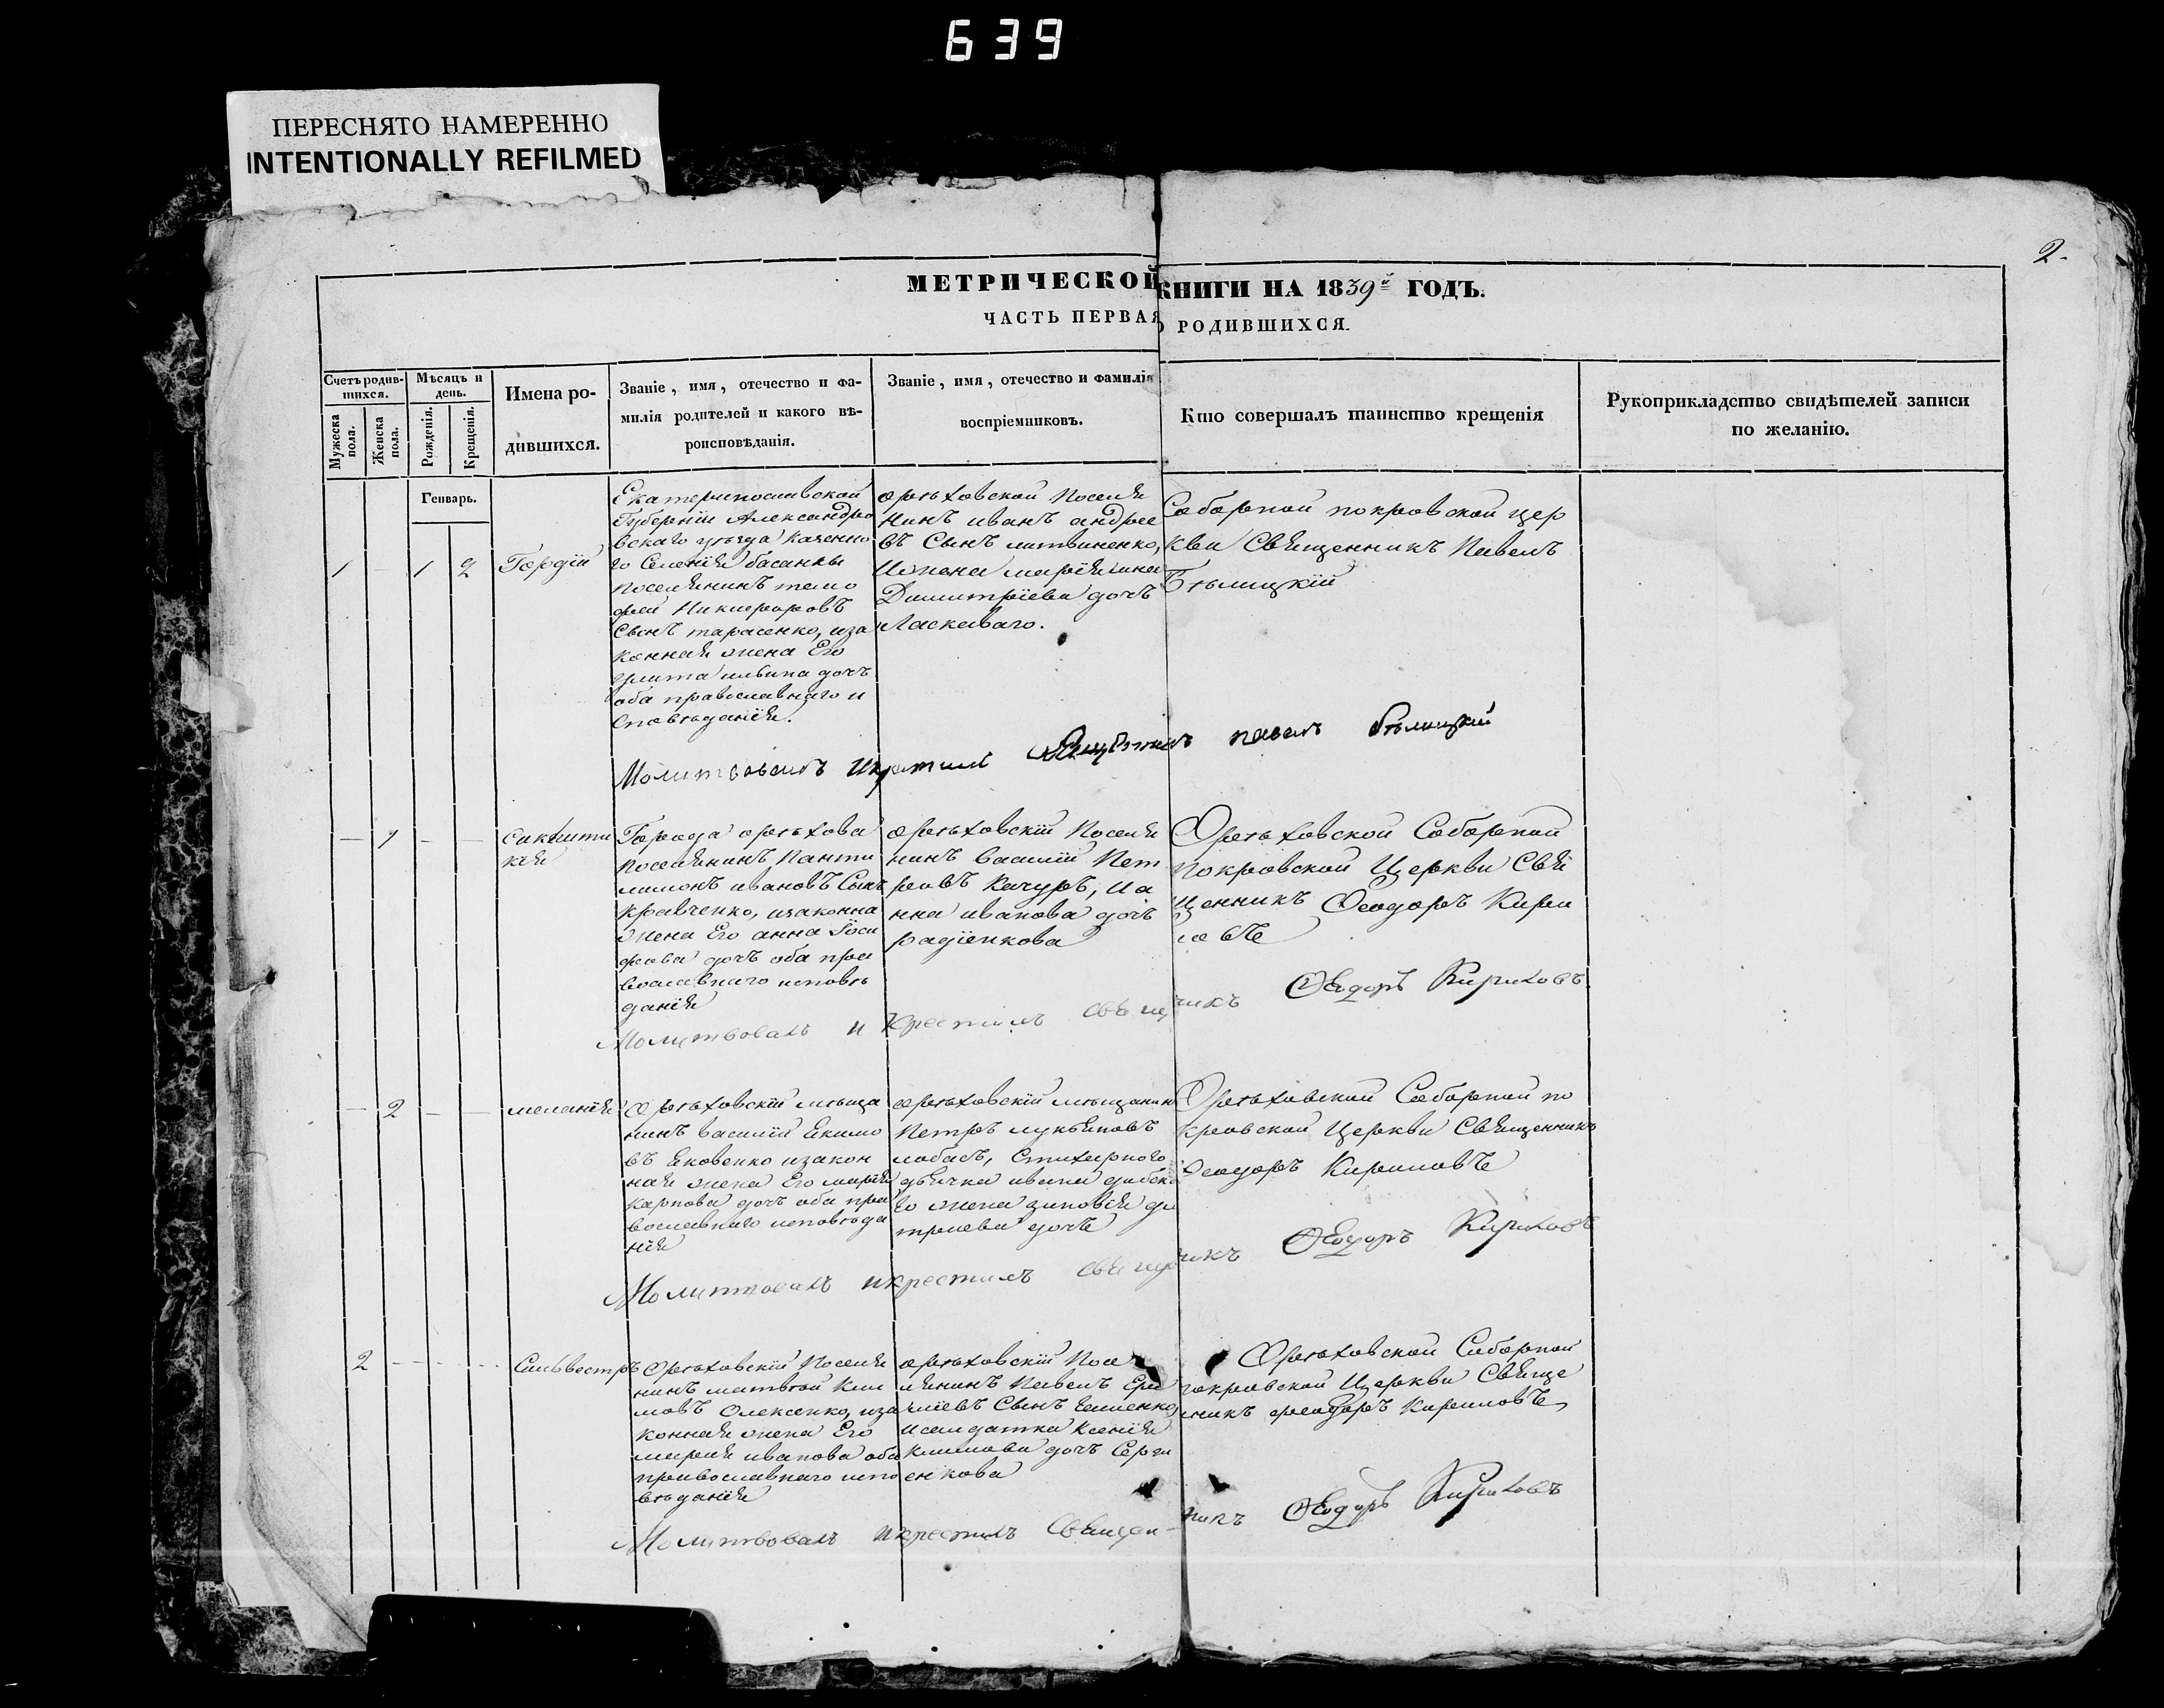 639
ПЕРЕСНЯТО НАМЕРЕННО
INTENTIONALLY REFILMED
2.
МЕТРИЧЕСКОЙ КНИГИ НА 1839й ГОДЪ.
ЧАСТЬ ПЕРВАЯ О РОДИВШИХСЯ.
Счетъ родив-
шихся.
Мужеска
пола.
Женска
пола.
Мѣсяцъ и
день.
Рожденія.
Крещенія.
Имена ро-
дившихся.
Званіе, имя, отечество и фа-
милія родителей и какого вѣ-
роисповѣданія.
Званіе, имя, отечество и фамилія
воспріемниковъ.
Кто совершалъ таинство крещенія
Рукоприкладство свидѣтелей записи
по желанію.
Генварь.
1 - 1 2
Гордій
Екатеринославской
Губерніи Александро
вскаго уѣзда казенно
го Селенія басанки
поселянинъ тимо
фей Никифоровъ
Сынъ тарасенко, иза
конная жена Его
оба православнаго и
споведанія.
орѣховской поселя
нинъ иванъ андрее
въ Сынъ литвиненко,
Димитріева дочъ
Ласкаваго.
Соборной покровской цер
кви Священникъ Павелъ
Бѣлицкій
Молитвовалъ икрестилъ Священникъ павелъ бѣлицкій
- 1 - -
синклити
кія
Города орѣхова
поселянинъ Панти
лимонъ ивановъ Сынъ
кравченко, изаконна
жена Его анна Іоси
фова дочъ оба пра
вославнаго исповѣ
данія
орѣховскій поселя
нинъ василій Пет
ровъ Качуръ, иа
нна иванова дочъ
радіенкова
Орѣховской Соборной
покровской Церкви Свя
щенникъ Феодоръ Кири
ловъ
Молитвовалъ и крестилъ священникъ Феодоръ Кириловъ
- 2 - -
меланія
орѣховскій мѣща
нинъ василій Екимо
въ Яковенко изакон
ная жена Его марія
карпова дочъ оба пра
вославнаго исповѣда
нія
орѣховскій мѣщанинъ
Петръ лукьяновъ
лобасъ,
го жена зиновія ди
тріева дочъ
Орѣховской Соборной по
кровской Церкви Священникъ
Феодоръ Кириловъ
Молитвовалъ икрестилъ священникъ Феодоръ Кириловъ
2 - - -
Сильвестръ
Орѣховскій поселя
нинъ матвѣй Кли
мовъ Олексенко, иза
конная жена Его
марія иванова оба
православнаго испо
вѣданія
орѣховскій посе
лянинъ Павелъ
Сынъ
исалдатка Ксенія
климова дочъ Серги
енкова
Орѣховской Соборной
покровской Церкви Свяще
нникъ феодоръ Кириловъ
Молитвовалъ икрестилъ Священ-никъ Феодоръ Кириловъ